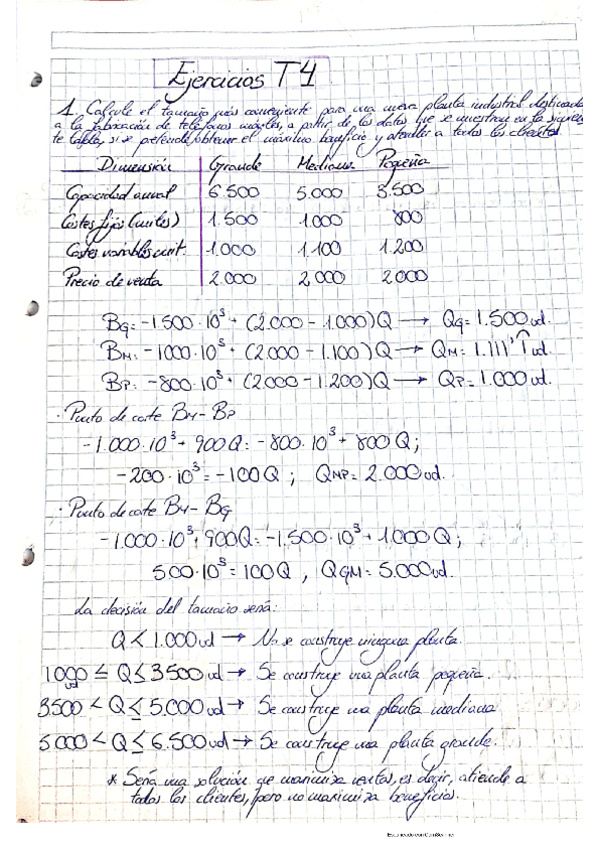 Ejercicios T4
1. Calcule el tamaño más conveniente para una nueva planta industrial destinada
a la fabricación de teléfonos móviles, a partir de los datos que se muestran en la siguien-
te tabla, si se pretende obtener el máximo beneficio y atender a todos los clientes
Dimensión Grande Mediana Pequeña
Capacidad anual 6.500 5.000 3.500
Costes fijos (miles) 1.500 1.000 800
Costes variables unit. 1.000 1.100 1.200
Precio de venta 2.000 2.000 2.000
BG = -1.500·10³ + (2.000 - 1.000)Q → QG = 1.500 ud.
BM = -1000·10³ + (2.000 - 1.100)Q → QM = 1.111'1 ud.
BP = -800·10³ + (2000 - 1.200)Q → QP = 1.000 ud.
· Punto de corte BM - BP
-1.000·10³ + 900Q = -800·10³ + 800Q;
-200·10³ = -100Q ; QMP = 2.000 ud.
· Punto de corte BM - BG
-1.000·10³ + 900Q = -1.500·10³ + 1.000Q;
500·10³ = 100Q , QGM = 5.000 ud.
La decisión del tamaño será:
Q < 1.000 ud → No se construye ninguna planta.
1000 ud ≤ Q ≤ 3500 ud → Se construye una planta pequeña.
3500 < Q ≤ 5.000 ud → Se construye una planta mediana
5000 < Q ≤ 6.500 ud → Se construye una planta grande.
* Será una solución que maximiza ventas, es decir, atiende a
todos los clientes, pero no maximiza beneficios.
Escaneado con CamScanner